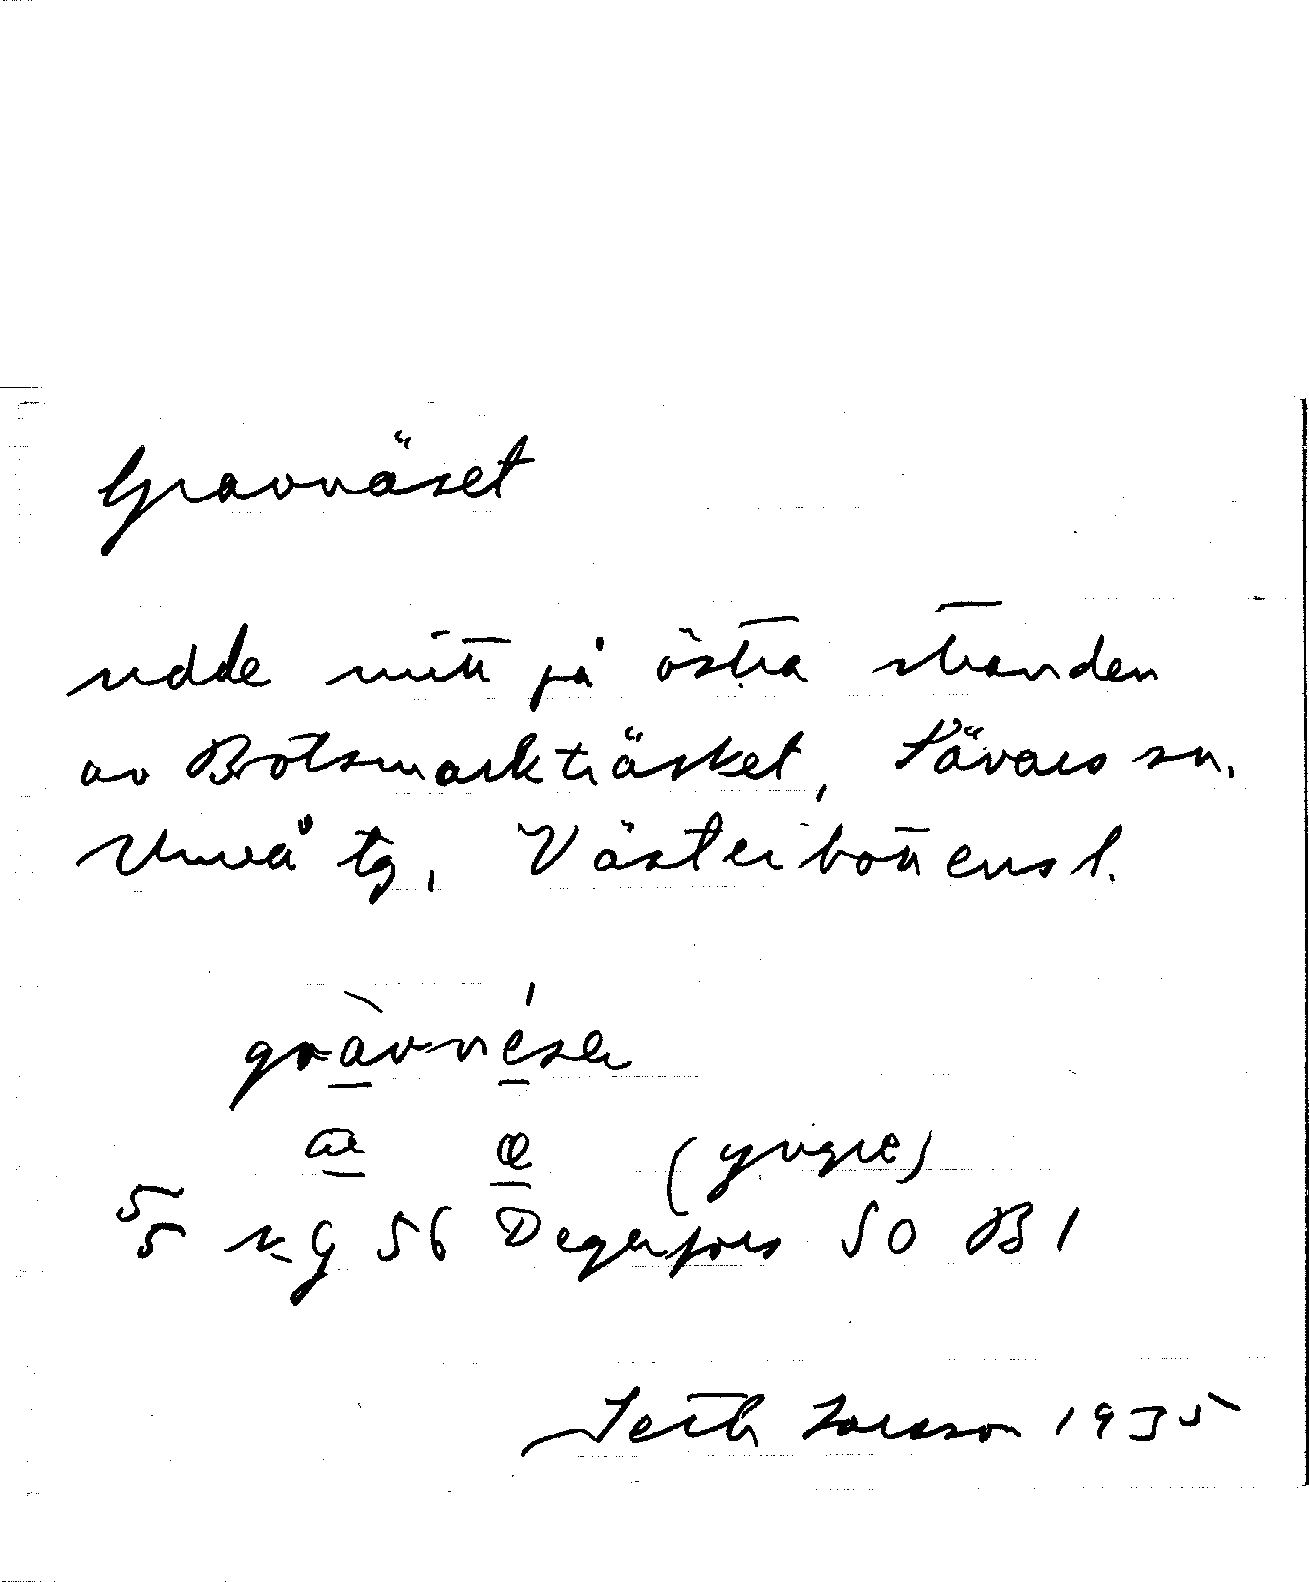 Gravnäset
udde mitt på östra stranden
av Botsmarkträsket, Sävars sn,
Umeå tg, Västerbottens l.
(yngre)
5/5 NG 56 Degerfors SO B 1
Seth Larsson 1935